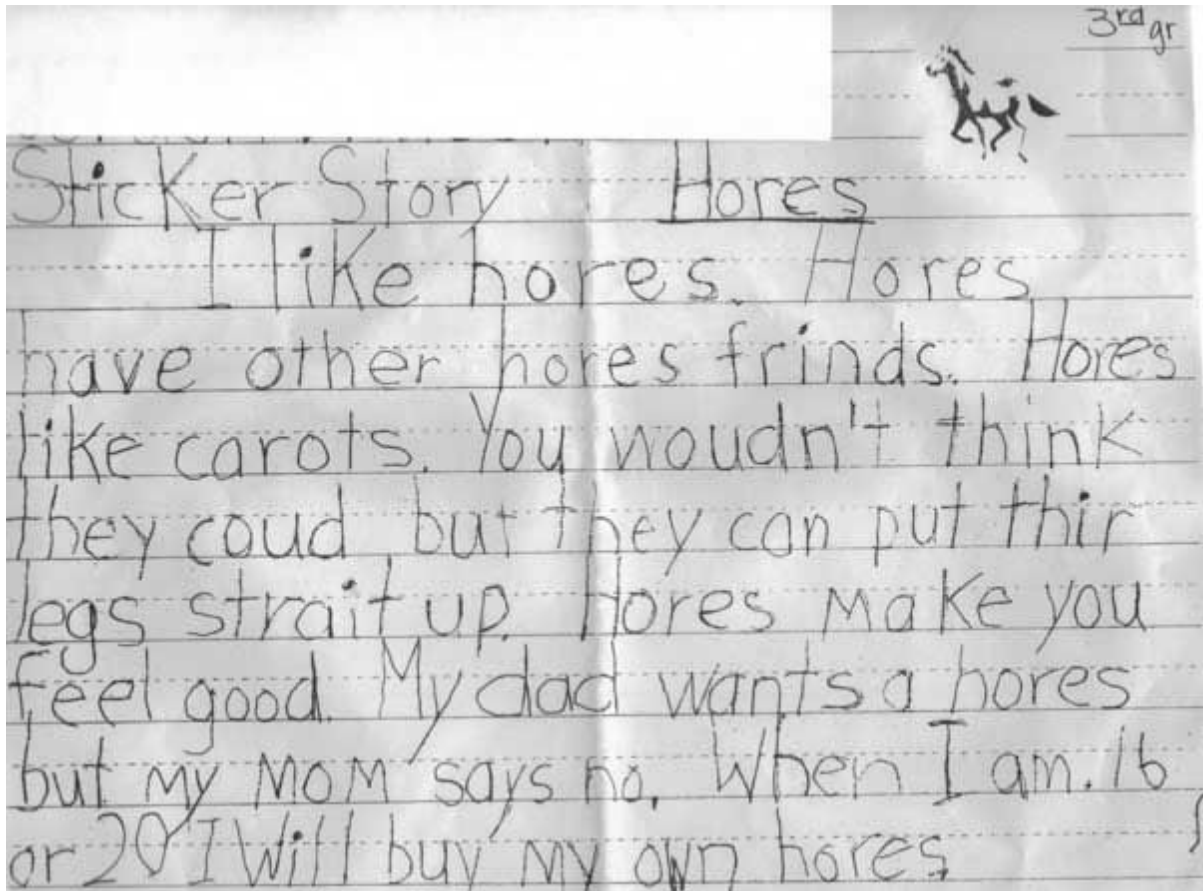 3rd gr
Sticker Story Hores
I like hores. Hores
have other hores frinds. Hores
like carots. You woudn't think
they coud but they can put thir
legs strait up. Hores make you
feel good. My dad wants a hores
but my mom says no. When I am. 16
or 20 I will buy my own hores